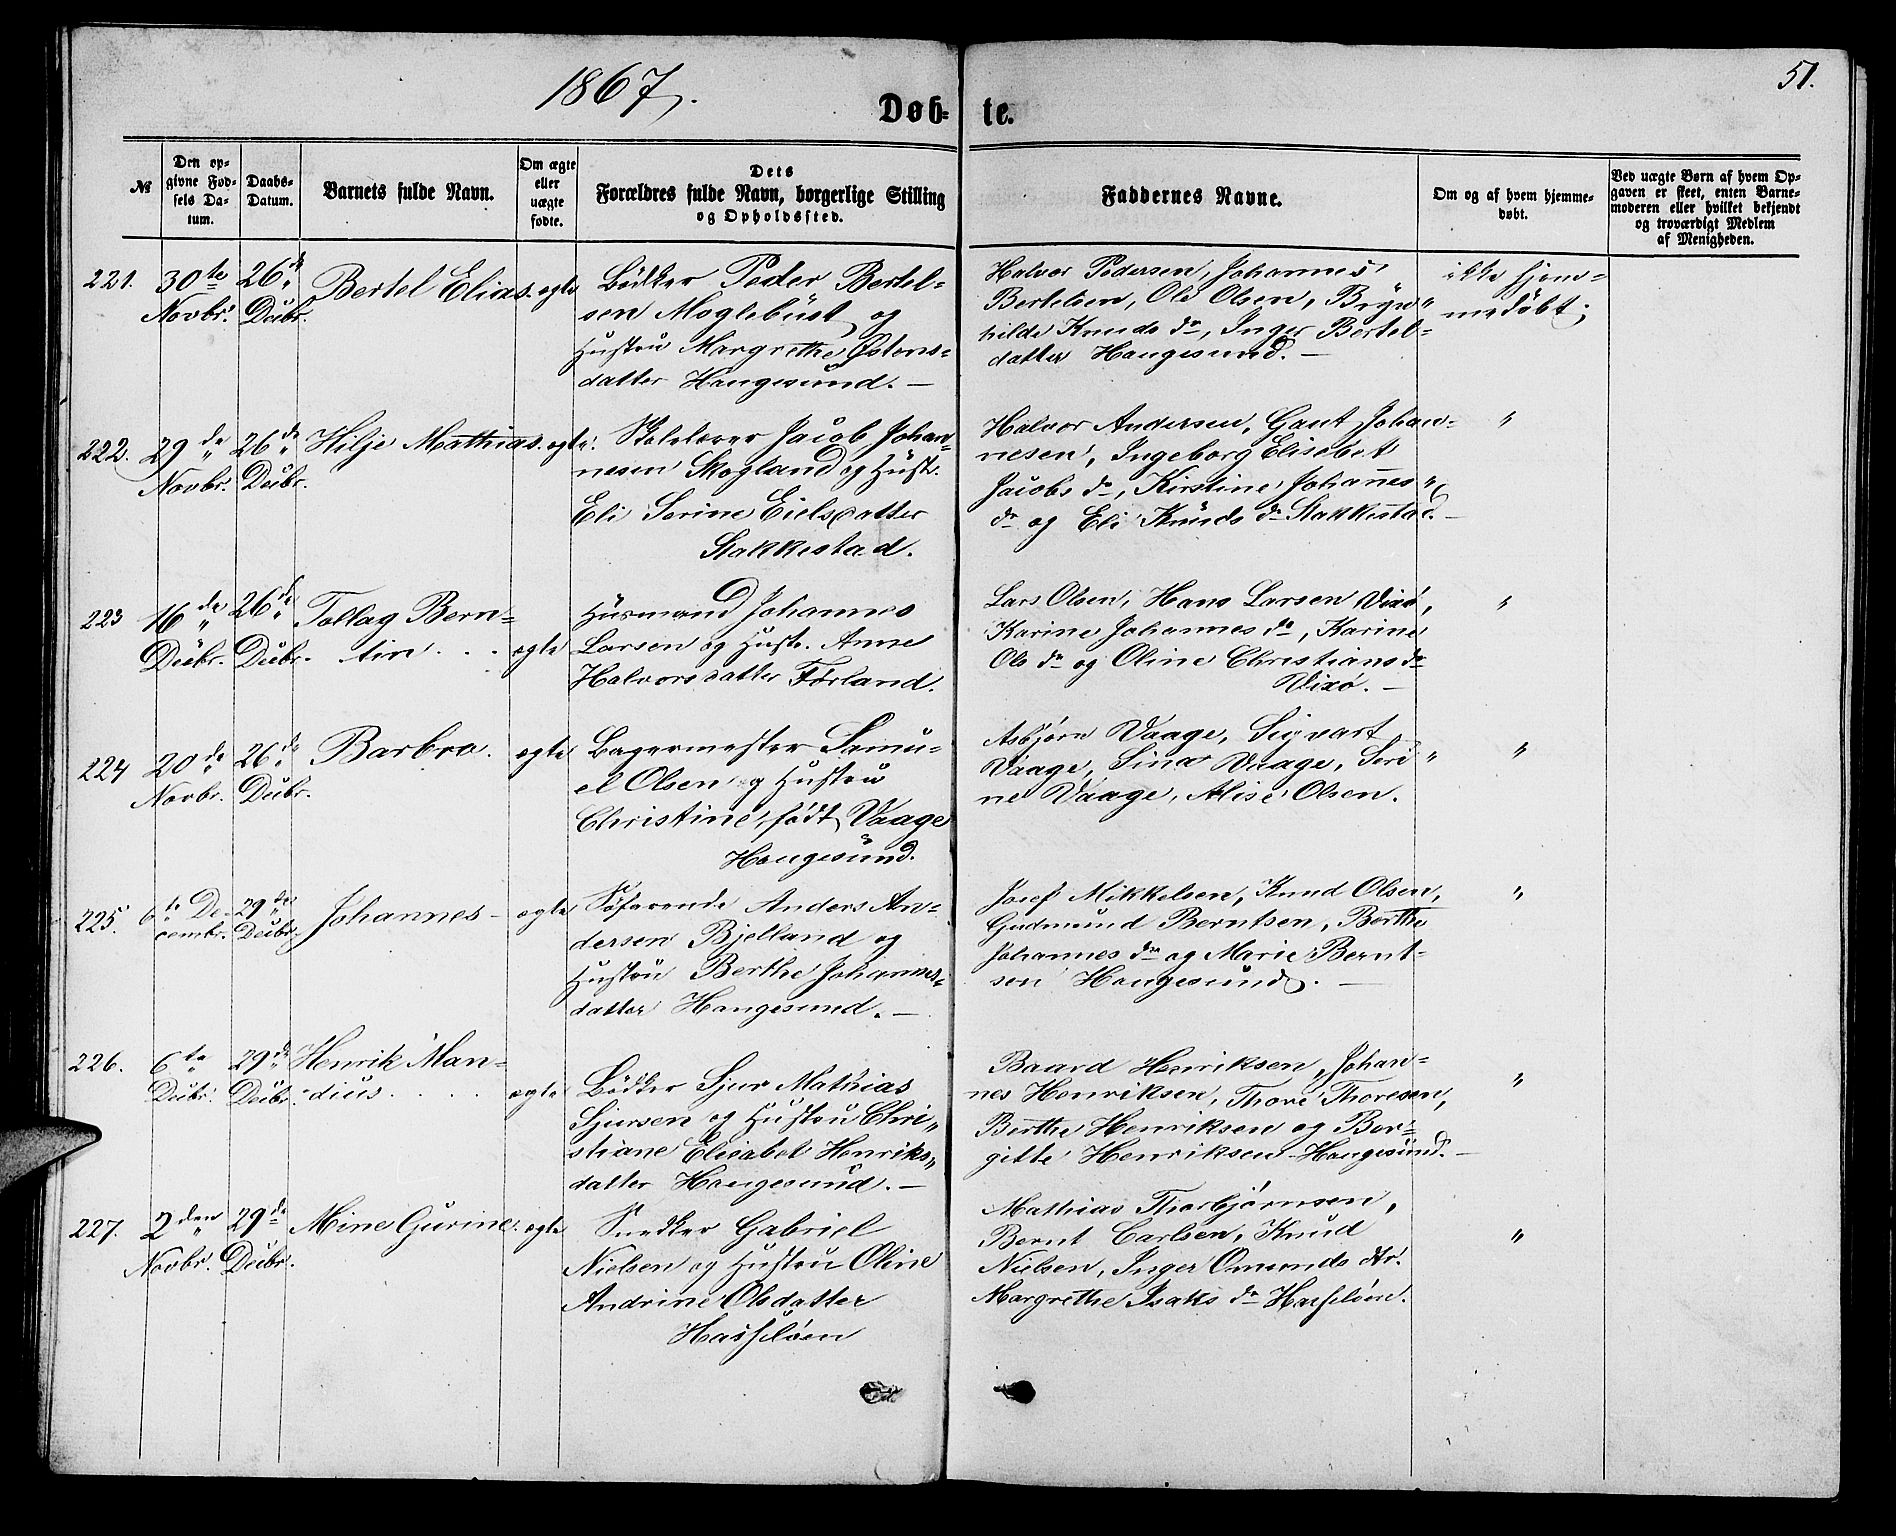 1867.
51.
Døb- te.
№
Den op-
givne Fød-
sels Da-
tum.
Daabs-
Datum.
Barnets fulde Navn.
Om ægte
eller
uægte
fødte.
Dets
Forældres fulde Navn, borgerlige Stilling
og Opholdssted.
Faddernes Navne.
Om og af hvem hjemme-
døbt.
Ved uægte Børn af hvem Op-
gaven er skeet, enten Barne-
moderen eller hvilket bekjendt
og troværdigt Medlem
af Menigheden.
221.
30te
Novbr.
26de
Decbr.
Bertel Elias.
ægte
Bødker Peder Bertel-
sen Moglebüst og
Hustru Margrethe Østens-
datter Haugesund. —
Halvor Pedersen, Johannes
Bertelsen, Ole Olsen, Bryn"
hilde Knuds dr, Inger Bertel-
datter Haugesund. —
ikke hjem-
medøbt;
222.
29de
Novbr.
26de
Decbr.
Hilje Mathias.
ægte.
Skolelærer Jacob Johan-
nesen Skogland og Hustr.
Eli Serine Eielsdatter
Stakkestad.
Halvor Andersen, Gaut Johan-
nesen, Ingeborg Elisebet
Jacobs dr, Kirstine Johannes"
dr og Eli Knüds dr Stakkestad. —
"
223
16de
Decbr.
26de
Decbr.
Tollag Bern-
tin . . .
ægte
Hüsmand Johannes
Larsen og Hustr. Anne
Halvorsdatter Førland.
Lars Olsen, Hans Larsen Vixø,
Karine Johannes dr, Karine
Ols dr og Oline Christians dr
Vixø. —
"
224
20de
Novbr.
26de
Decbr.
Barbra.
ægte
Bagermester Samü-
el Olsen og Hustru
Christine, født Vaage
Haugesund.
Asbjørn Vaage, Sigvart
Vaage, Sina Vaage, Seri "
ne Vaage, Alise Olsen.
"
225.
6te De-
cembr.
29de
Decbr.
Johannes -
ægte
Søfarende Anders An-
dersen Bjelland og
Hustru Berthe Johannes-
datter Haugesund. —
Josef Mikkelsen, Knud Olsen,
Gudmund Berntsen, Berthe
Johannes dr og Marie Bernt-
sen Haugesund. —
"
226.
6te
Decbr.
29de
Decbr.
Henrik Man-
dius . . . .
ægte
Bødker Sjur Mathias
Sjursen og Hustru Chri"
stiane Elisabet Henriks"
datter Haugesund. —
Baard Henriksen, Johan-
nes Henriksen, Thore Thoresen,
Berthe Henriksen og Ber-
gitte Henriksen Haugesund. —
"
227.
2den
Novbr.
29de
Decbr.
Mine Gurine.
ægte
Snedker Gabriel
Nielsen og Hustru Oline
Andrine Olsdatter
Hasseløen
Mathias Thorbjørnsen,
Bernt Carlsen, Knud
Nielsen, Inger Omunds dtr.
Margrethe Isaks dr Hasseløen.
"